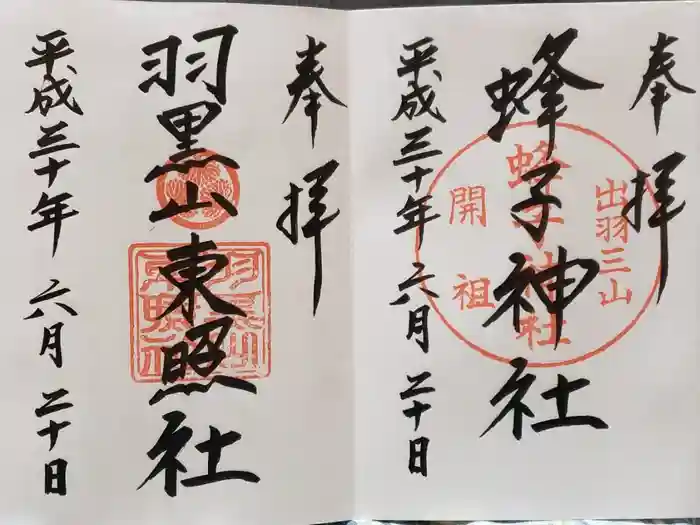 奉拝
出羽三山
蜂子神社
蜂子神社
開祖
平成三十年 六月 二十日
奉拝
羽黒山東照社
平成三十年 六月 二十日